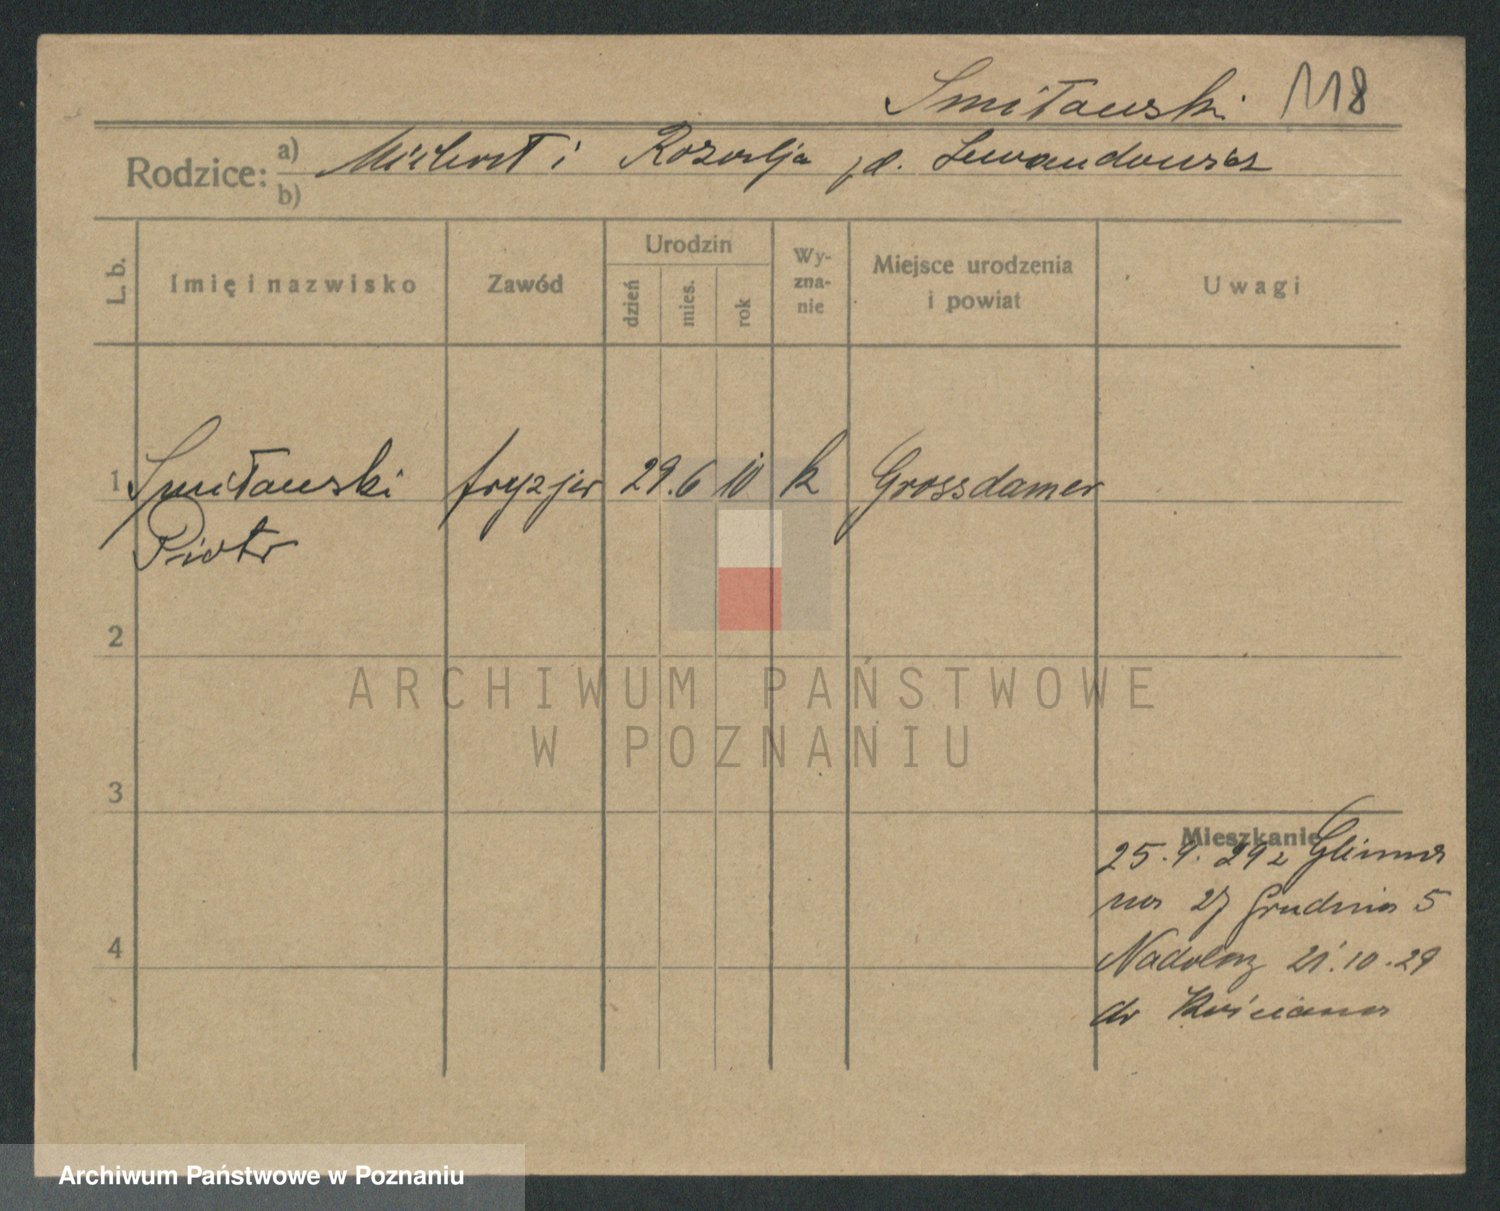 Smiławski 118
Rodzice: a) Michał i Rozalja
b)
L. b.
Imię i nazwisko
Zawód
Urodzin
dzień
mies.
rok
Wy-
zna-
nie
Miejsce urodzenia
i powiat
Uwagi
1 Smiławski fryzjer 29. 6 10 k Grossdamer
Piotr
2
ARCHIWUM PAŃSTWOWE
W POZNANIU
3
Mieszkanie
25. 9. 29 z
na 27 Grudnia 5
21.10.29
do Kościana
4
Archiwum Państwowe w Poznaniu